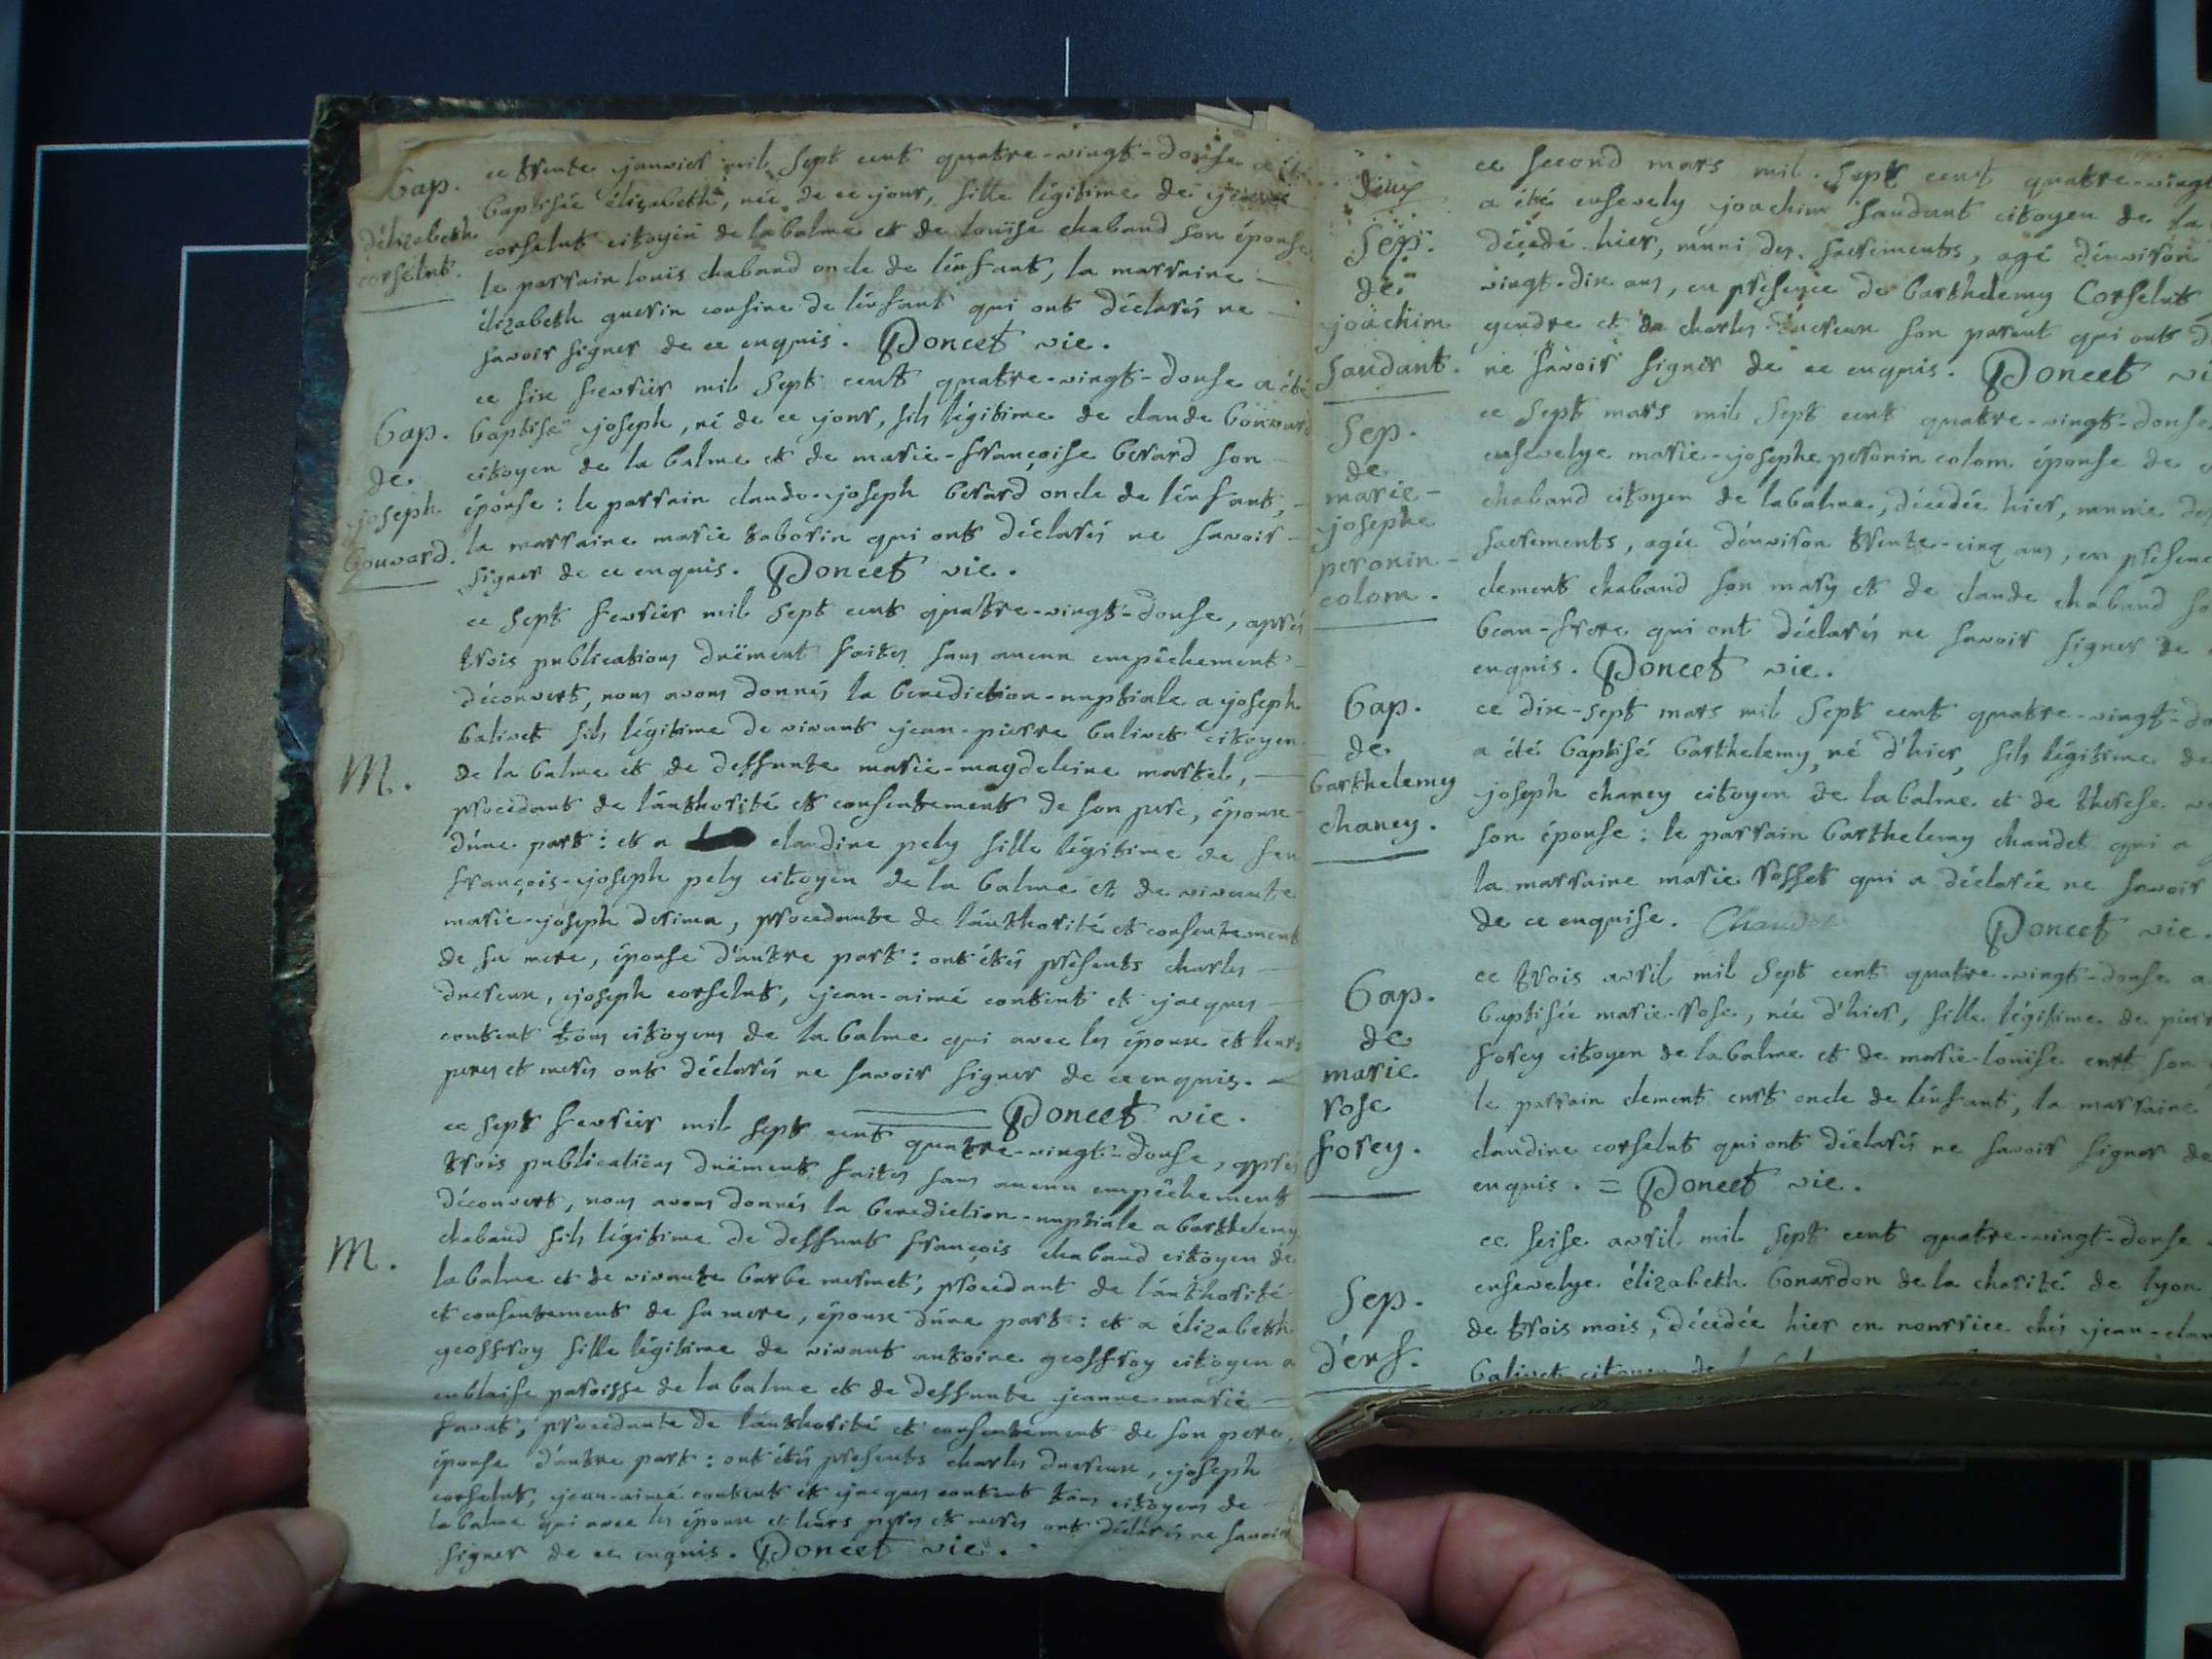 Bap.
d'élizabeth
corselut.
ce trente janvier mil sept cent quatre-vingt-douse a été
baptisée élizabeth, née de ce jour, fille légitime de
corselut citoyen de la balme et de louïse chaband son épouse
le parrain louïs chaband oncle de l'enfant, la marraine
élizabeth guerin cousine de l'enfant qui ont déclarés ne
savoir signer de ce enquis. Poncet vic.
Bap.
de
joseph
bouvard.
ce six fevrier mil sept cent quatre-vingt-douse a été
baptisé joseph, né de ce jour, fils légitime de claude bouvard
citoyen de la balme et de marie-françoise berard son
épouse : le parrain claude-joseph berard oncle de l'enfant,
la marraine marie taborin qui ont déclarés ne savoir
signer de ce enquis. Poncet vic.
M.
ce sept fevrier mil sept cent quatre-vingt-douse, après
trois publications duëment faites sans aucun empêchement
découvert, nous avons donnés la benediction-nuptiale a joseph
balivet fils légitime de vivant jean-pierre balivet citoyen
de la balme et de deffunte marie-magdeleine martel,
procedant de l'authorité et consentement de son pere, époux
d'une part : et a claudine pely fille légitime de feu
françois-joseph pely citoyen de la balme et de vivante
marie-joseph derima, procedante de l'authorité et consentement
de sa mere, épouse d'autre part : ont étés présents charles
ducreux, joseph corselut, jean-aimé contint et jacques
content tous citoyens de la balme qui avec les époux et leurs
peres et meres ont déclarés ne savoir signer de ce enquis.
Poncet vic.
M.
ce sept fevrier mil sept cent quatre-vingt-douse, après
trois publications duëment faites sans aucun empêchement
découvert, nous avons donnés la benediction-nuptiale a barthelemy
chaband fils légitime de deffunt françois chaband citoyen de
la balme et de vivante barbe mermet, procedant de l'authorité
et consentement de sa mere, époux d'une part : et a élizabeth
geoffroy fille légitime de vivant antoine geoffroy citoyen a
enblaise paroisse de la balme et de deffunte jeanne-marie
savat, procedante de l'authorité et consentement de son pere,
épouse d'autre part : ont étés présents charles ducreux, joseph
corselut, jean-aimé contint et jacques contint tous citoyens de
la balme qui avec les époux et leurs peres et meres ont déclarés ne savoir
signer de ce enquis. Poncet vic.
deux
Sep.
de
joachim
saudant.
ce second mars mil sept cent quatre-vingt
a été ensevely joachim saudant citoyen de la
décedé hier, muni des sacrements, agé d'environ
vingt-dix ans, en présence de barthelemy Corselut
gendre et de charles ducreux son parent qui ont
ne savoir signer de ce enquis. Poncet
Sep.
de
marie-
josephe
peronin-
colom.
ce sept mars mil sept cent quatre-vingt-douse
ensevelye marie-josephe peronin colom épouse de
chaband citoyen de la balme, décedée hier, munie des
sacrements, agée d'environ trente-cinq ans, en présence
clement chaband son mary et de claude chaband
beau-frere qui ont déclarés ne savoir signer de
enquis. Poncet vic.
Bap.
de
barthelemy
chaney.
ce dix-sept mars mil sept cent quatre-vingt-
a été baptisé barthelemy, né d'hier, fils légitime de
joseph chaney citoyen de la balme et de therese
son épouse : le parrain barthelemy chaudet qui a
la marraine marie rosset qui a déclarée ne savoir
de ce enquise. Chaudet Poncet vic.
Bap.
de
marie
rose
forey.
ce trois avril mil sept cent quatre-vingt-douse a
baptisée marie-rose, née d'hier, fille légitime de
forey citoyen de la balme et de marie-louïse curt son
le parrain clement curt oncle de l'enfant, la marraine
claudine corselut qui ont déclarés ne savoir signer de
enquis. = Poncet vic.
Sep.
d'ers.
ce seise avril mil sept cent quatre-vingt-douse
ensevelye élizabeth bonardon de la charité de lyon
de trois mois, décedée hier en nourrice chés jean-
balivet citoyen de